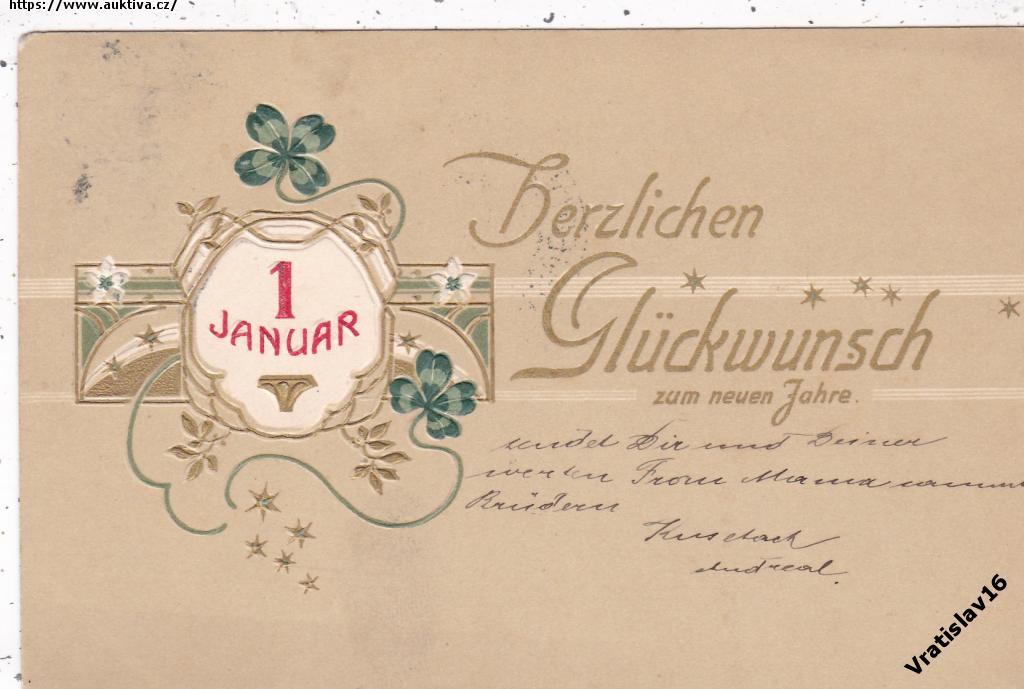 https://www.auktiva.cz/
Herzlichen
Glückwunsch
zum neuen Jahre.
1
JANUAR
sendet Dir und Deiner
werten Frau Mama samt
Brüdern
Vratislav16